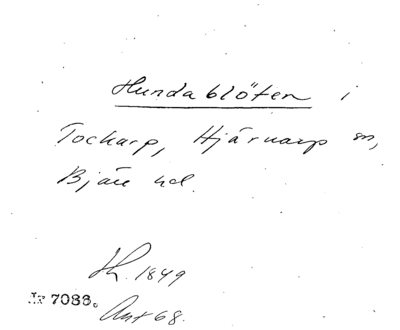 Hundablöten i
Tockarp, Hjärnarp sn,
Bjäre hd.
Lh. 1849
Nr 7086.
Ant 68.